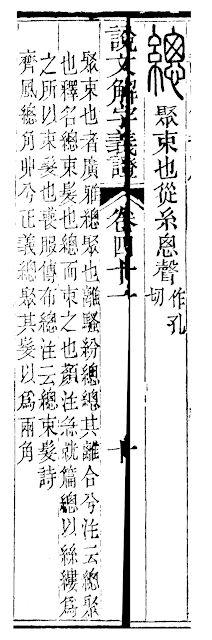 總
聚束也從糸悤聲 作孔切
說文解字義證 卷四十一 十
聚束也者廣雅總聚也離騷紛總總其離合兮注云總聚
也釋名總束髮也總而束之也顏注急就篇總以絲縷爲
之所以束髮也喪服傳布總注云總束髮詩
齊風總角丱兮正義總聚其髮以爲兩角